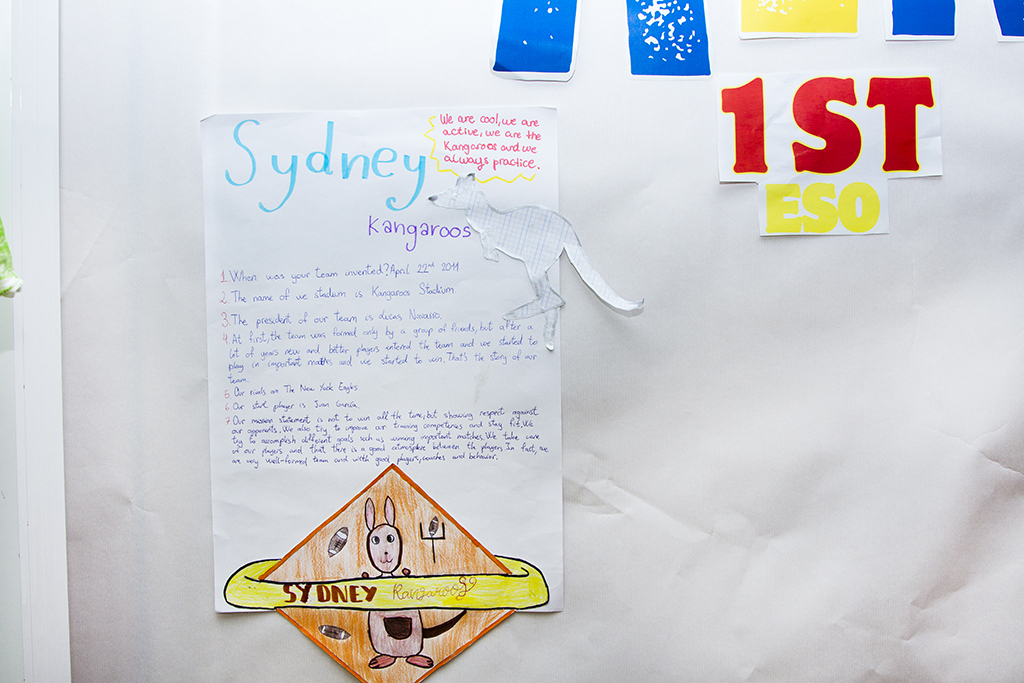 Sydney
Kangaroos
We are cool, we are
active, we are the
Kangaroos and we
always practice.
1ST
ESO
1. When was your team invented? April 22nd 2011
2. The name of we stadium is Kangaroos Stadium
3. The president of our team is Lucas Navarro.
4. At first, the team was formed only by a group of friends, but after a
lot of years new and better players entered the team and we started to
play in important maths and we started to win. That's the story of our
team.
5. Our rivals are The New York Eagles
6. Our start player is Juan García.
7. Our mission statement is not to win all the time, but showing respect against
our opponents. We also try to improve our training competences and stay fit. We
try to accomplish different goals such us winning important matches. We take care
of our players, and that there is a good atmosphere between the players. In fact, we
are very well-formed team and with good players, coaches and behavior.
SYDNEY Kangaroos